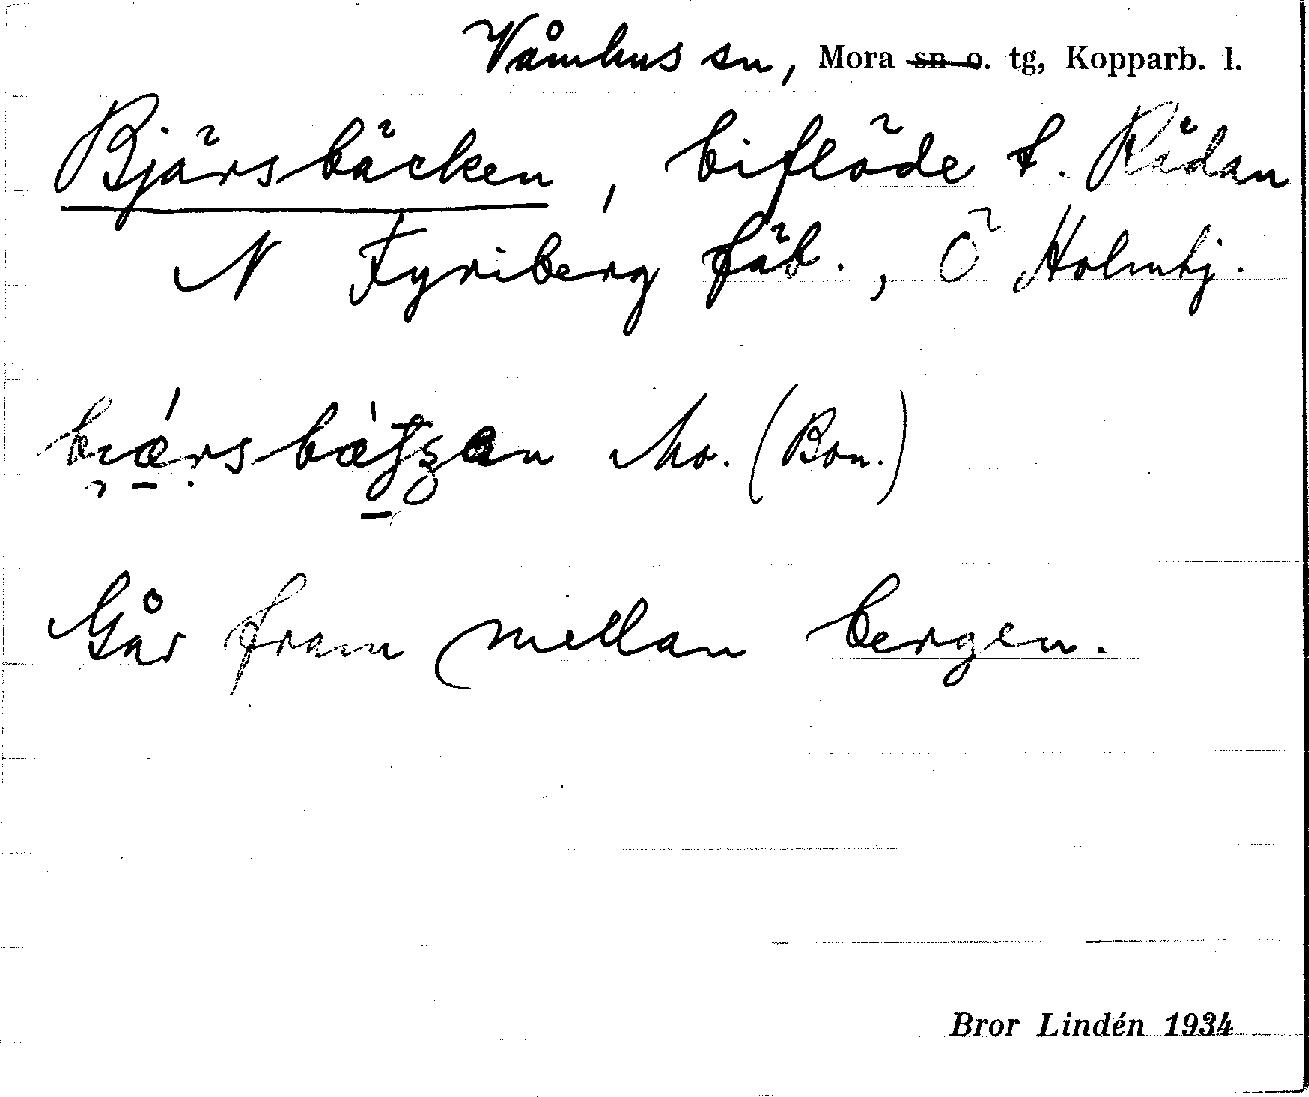 Våmhus sn, Mora sn o. tg, Kopparb. l.
Bjärsbäcken, biflöde t. Rädan
N Fyriberg fäb., Ö Holmtj.
Mo. (Bon.)
Går fram mellan bergen.
Bror Lindén 1934